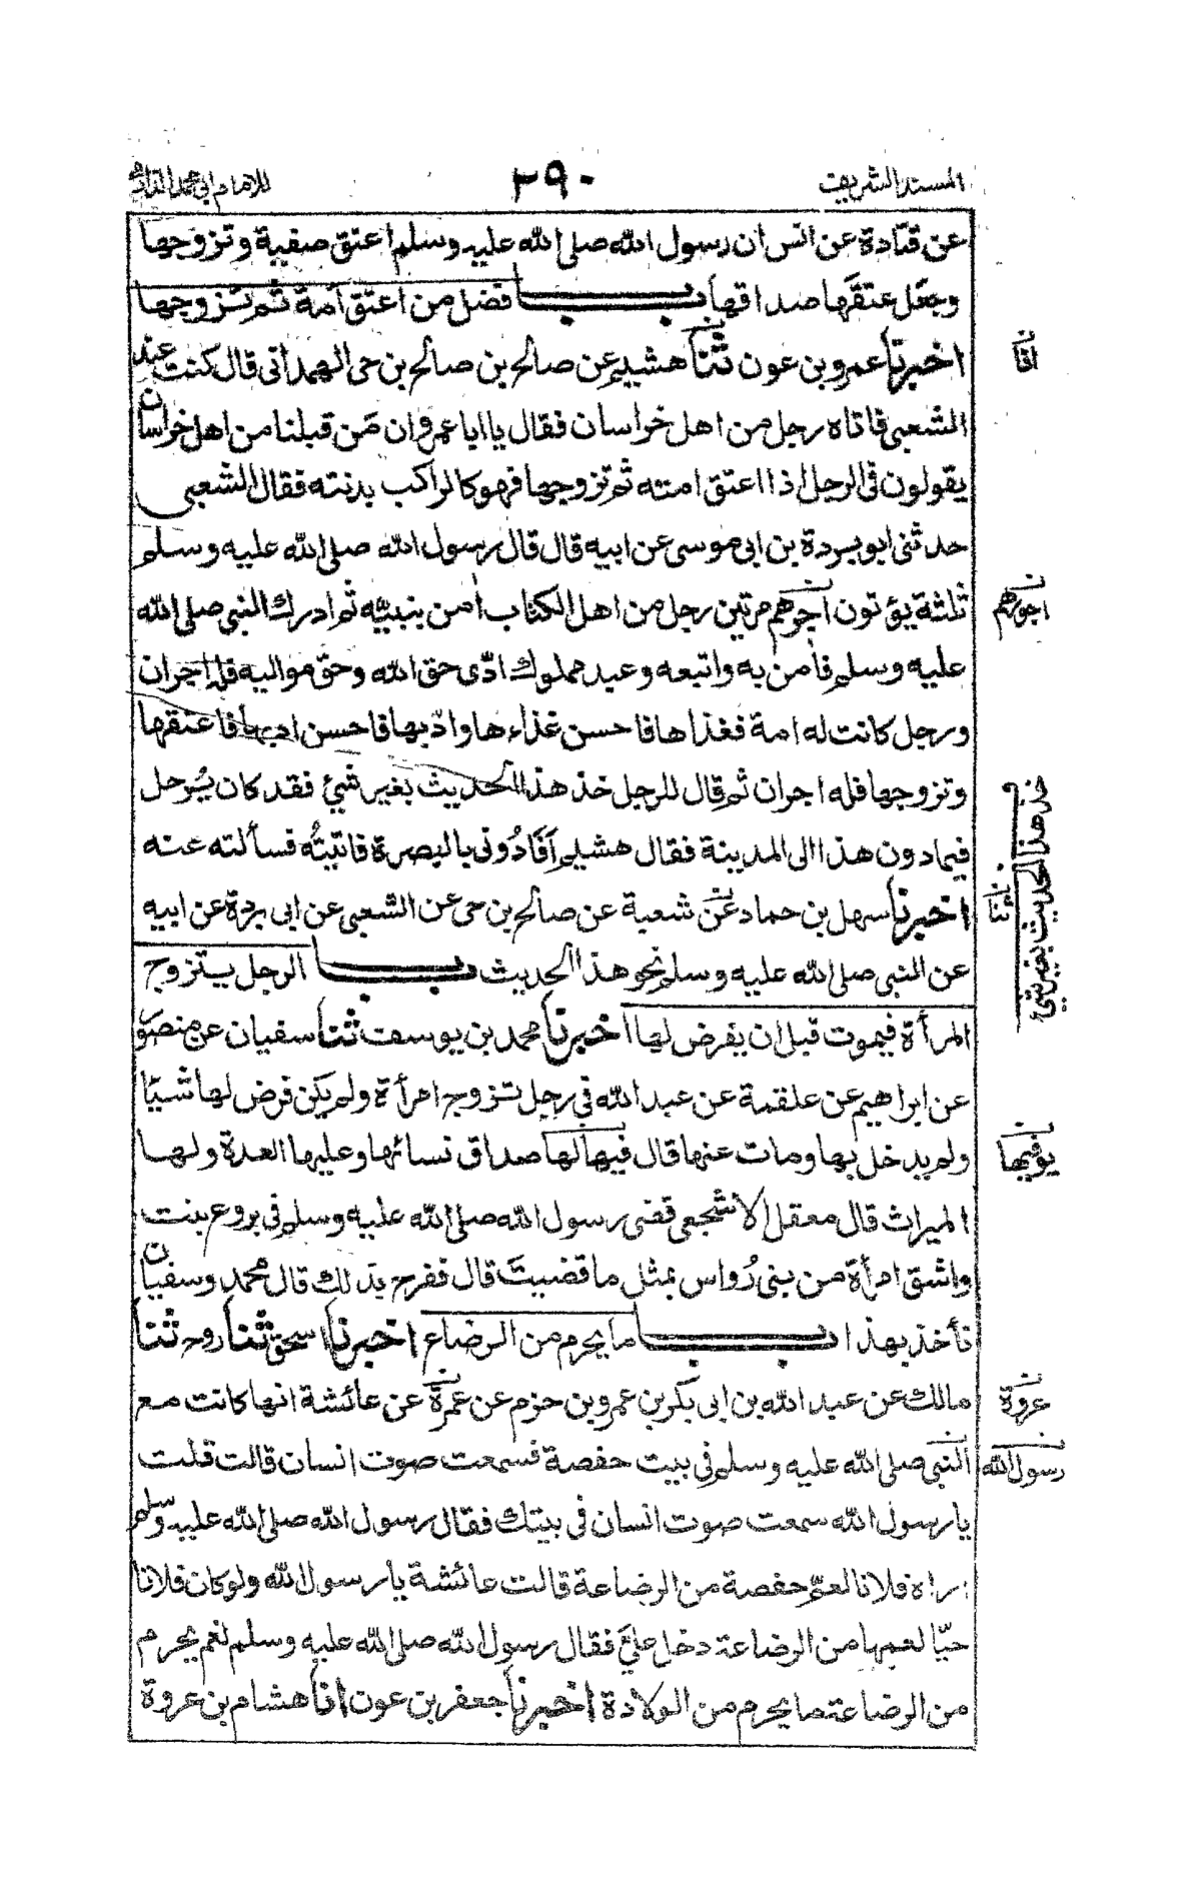 المسند الشريف ٢٩٠ للامام ابى محمد الدارمى
عن قتادة عن انس ان رسول الله صلى الله عليه وسلم اعتق صفية وتزوجها
وجعل عتقها صداقها باب فضل من اعتق امة ثم تزوجها
اخبرنا عمرو بن عون ثنا هشيم عن صالح بن صالح بن حى الهمدانى قال كنت عند
الشعبى فاتاه رجل من اهل خراسان فقال يا ابا عمرو ان من قبلنا من اهل خراسان
يقولون فى الرجل اذا اعتق امته ثم تزوجها فهو كالراكب بدنته فقال الشعبى
حدثنى ابو بردة بن ابى موسى عن ابيه قال قال رسول الله صلى الله عليه وسلم
ثلثة يؤتون اجرهم مرتين رجل من اهل الكتاب امن بنبيّه ثم ادرك النبى صلى الله
عليه وسلم فامن به واتبعه وعبد مملوك ادّى حق الله وحق مواليه فله اجران
ورجل كانت له امة فغذاها فاحسن غذاءها وادّبها فاحسن ادبها فاعتقها
وتزوجها فله اجران ثم قال للرجل خذ هذا الحديث بغير شئ فقد كان يُرحل
فيما دون هذا الى المدينة فقال هشيم اَفَادُونى بالبصرة فاتيتُه فسألته عنه
اخبرنا سهل بن حماد عن شعبة عن صالح بن حى عن الشعبى عن ابى بردة عن ابيه
عن النبى صلى الله عليه وسلم نحو هذا الحديث باب الرجل يتزوج
المرأة فيموت قبل ان يفرض لها اخبرنا محمد بن يوسف ثنا سفيان عن منصور
عن ابراهيم عن علقمة عن عبد الله فى رجل تزوج امرأة ولم يكن فرض لها شيًا
ولم يدخل بها ومات عنها قال فيها لها صداق نسائها وعليها العدة ولها
الميراث قال معقل الاشجعى قضى رسول الله صلى الله عليه وسلم فى بروع بنت
واشق امرأة من بنى رُواس بمثل ما قضيتَ قال ففرح بذلك قال محمد وسفيان
نأخذ بهذا باب ما يحرم من الرضاع اخبرنا اسحق ثنا روح ثنا
مالك عن عبد الله بن ابى بكر بن عمرو بن حزم عن عمرة عن عائشة انها كانت مع
النبى صلى الله عليه وسلم فى بيت حفصة فسمعت صوت انسان قالت قلت
يا رسول الله سمعت صوت انسان فى بيتك فقال رسول الله صلى الله عليه وسلم
اراه فلانا لعمّ حفصة من الرضاعة قالت عائشة يا رسول الله ولو كان فلانا
حيّا لعمها من الرضاعة دخل علىَّ فقال رسول الله صلى الله عليه وسلم نعم يحرم
من الرضاعة ما يحرم من الولادة اخبرنا جعفر بن عون انا هشام بن عروة
انا
اجورهم
خذ هذا الحديث بغير شئ
ثنا
يوفيها
عروة
رسول الله